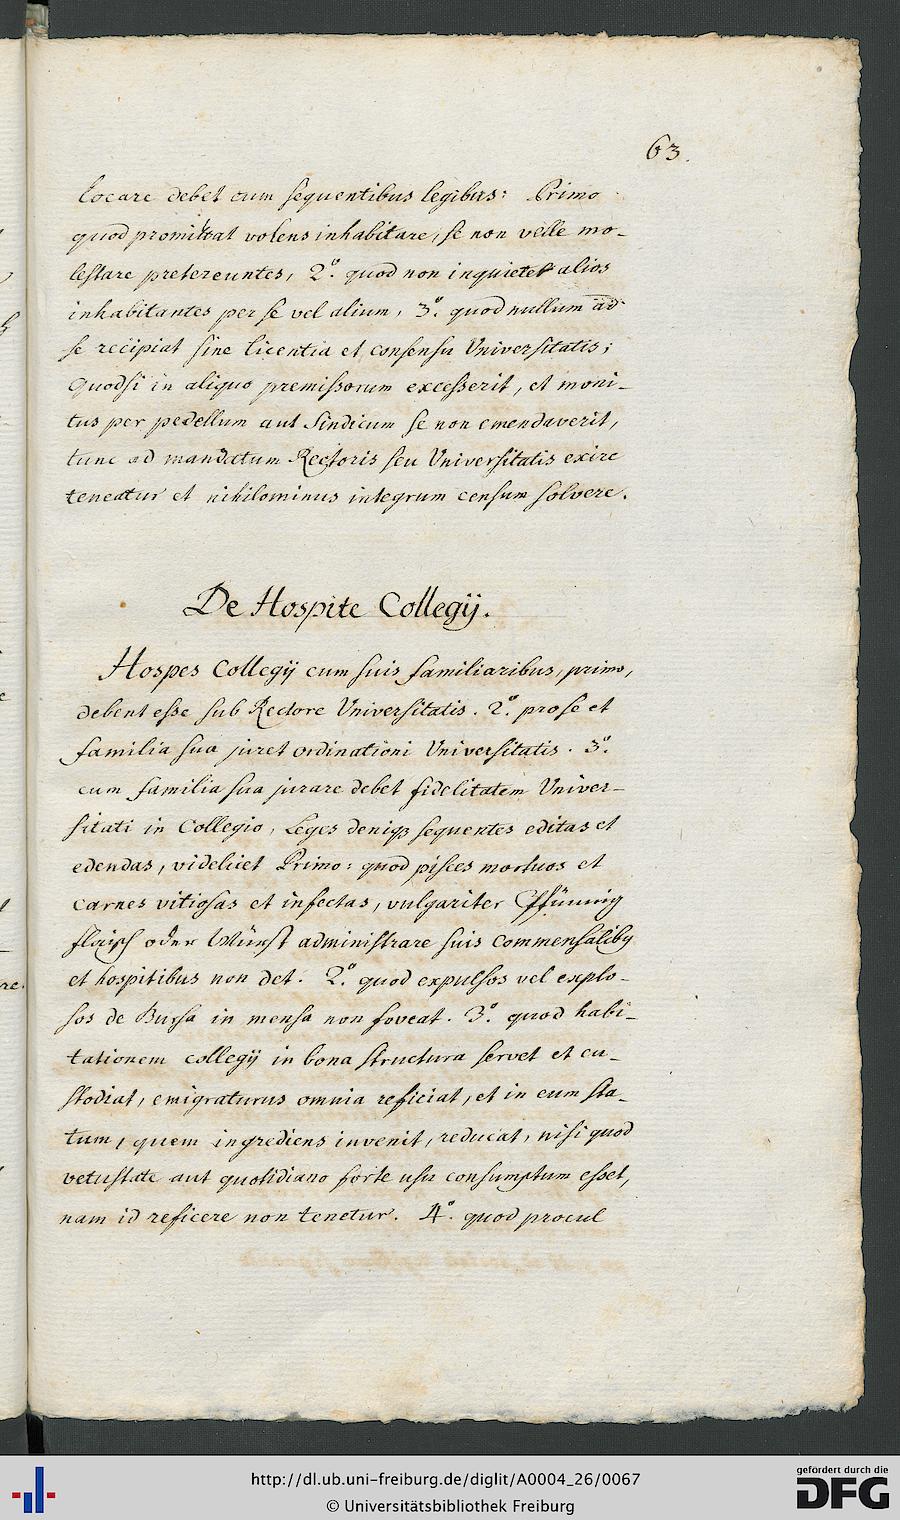 63.
locare debet cum sequentibus legibus: Primo
quod promittat volens inhabitare, se non velle mo-
lestare pretereuntes, 2º. quod non inquietet alios
inhabitantes per se vel alium, 3º. quod nullum ad
se recipiat sine licentia et consensu Universitatis;
Quodsi in aliquo premissorum excesserit, et moni-
tus per pedellum aut Sindicum se non emendaverit,
tunc ad mandatum Rectoris seu Universitatis exire
teneatur et nihilominus integrum censum solvere.
De Hospite Collegij.
Hospes Collegij cum suis familiaribus, primo,
debent esse sub Rectore Universitatis. 2º. pro se et
familia sua juret ordinationi Universitatis. 3º.
cum familia sua jurare debet fidelitatem Univer-
sitati in Collegio, Leges deniqz sequentes editas et
edendas, videlicet Primo: quod pisces mortuos et
carnes vitiosas et infectas, vulgariter Pfünnig
flaisch oder Würst administrare suis commensalibg
et hospitibus non det. 2º. quod expulsos vel explo-
sos de Bursa in mensa non foveat. 3º. quod habi-
tationem collegij in bona structura servet et cu-
stodiat, emigraturus omnia reficiat, et in eum sta-
tum, quem ingrediens invenit, reducat, nisi quod
vetustate aut quotidiano forte usu consumptum esset,
nam id reficere non tenetur. 4º. quod procul
http://dl.ub.uni-freiburg.de/diglit/A0004_26/0067
© Universitätsbibliothek Freiburg
gefördert durch die
DFG